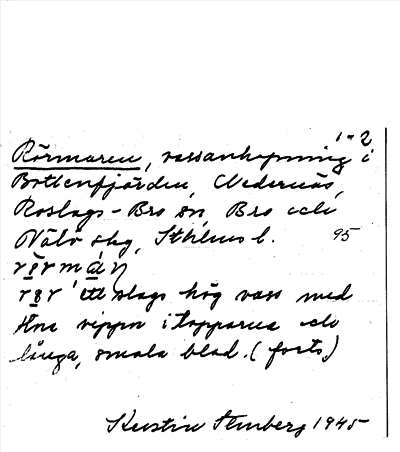 1-2
Rörmaren, vassanhopning i
Bottenfjärden, Nedernäs,
Roslags-Bro sn, Bro och
Väle skg, Sthlms l. 95
rör ett slags hög vass med
fina vippor i topparna och
långa, smala blad. (forts)
Kerstin Stenberg 1945